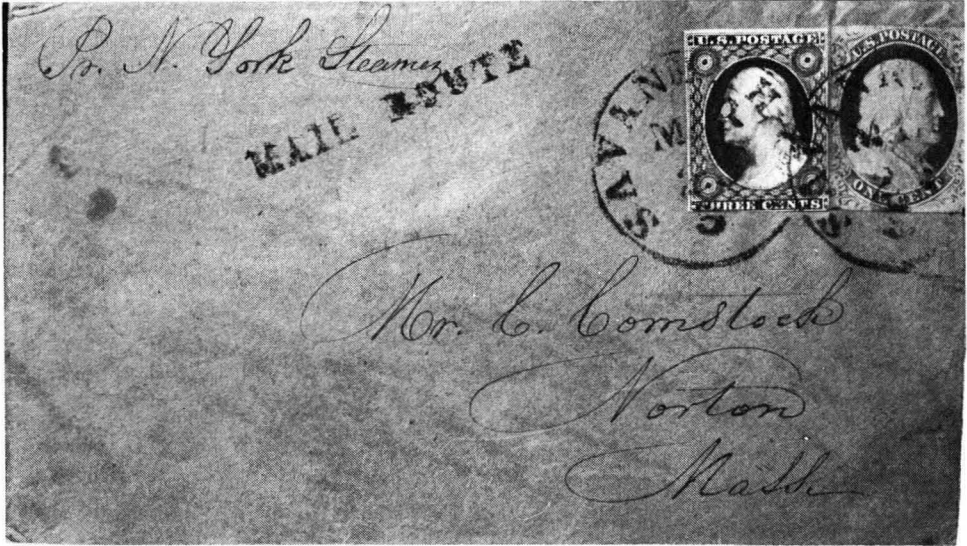 Pr. N. York Steamer
MAIL ROUTE
SAVAN
U.S. POSTAGE
THREE CENTS
U.S. POSTAGE
ONE CENT
Mr. C. Comstock
Norton
Mass